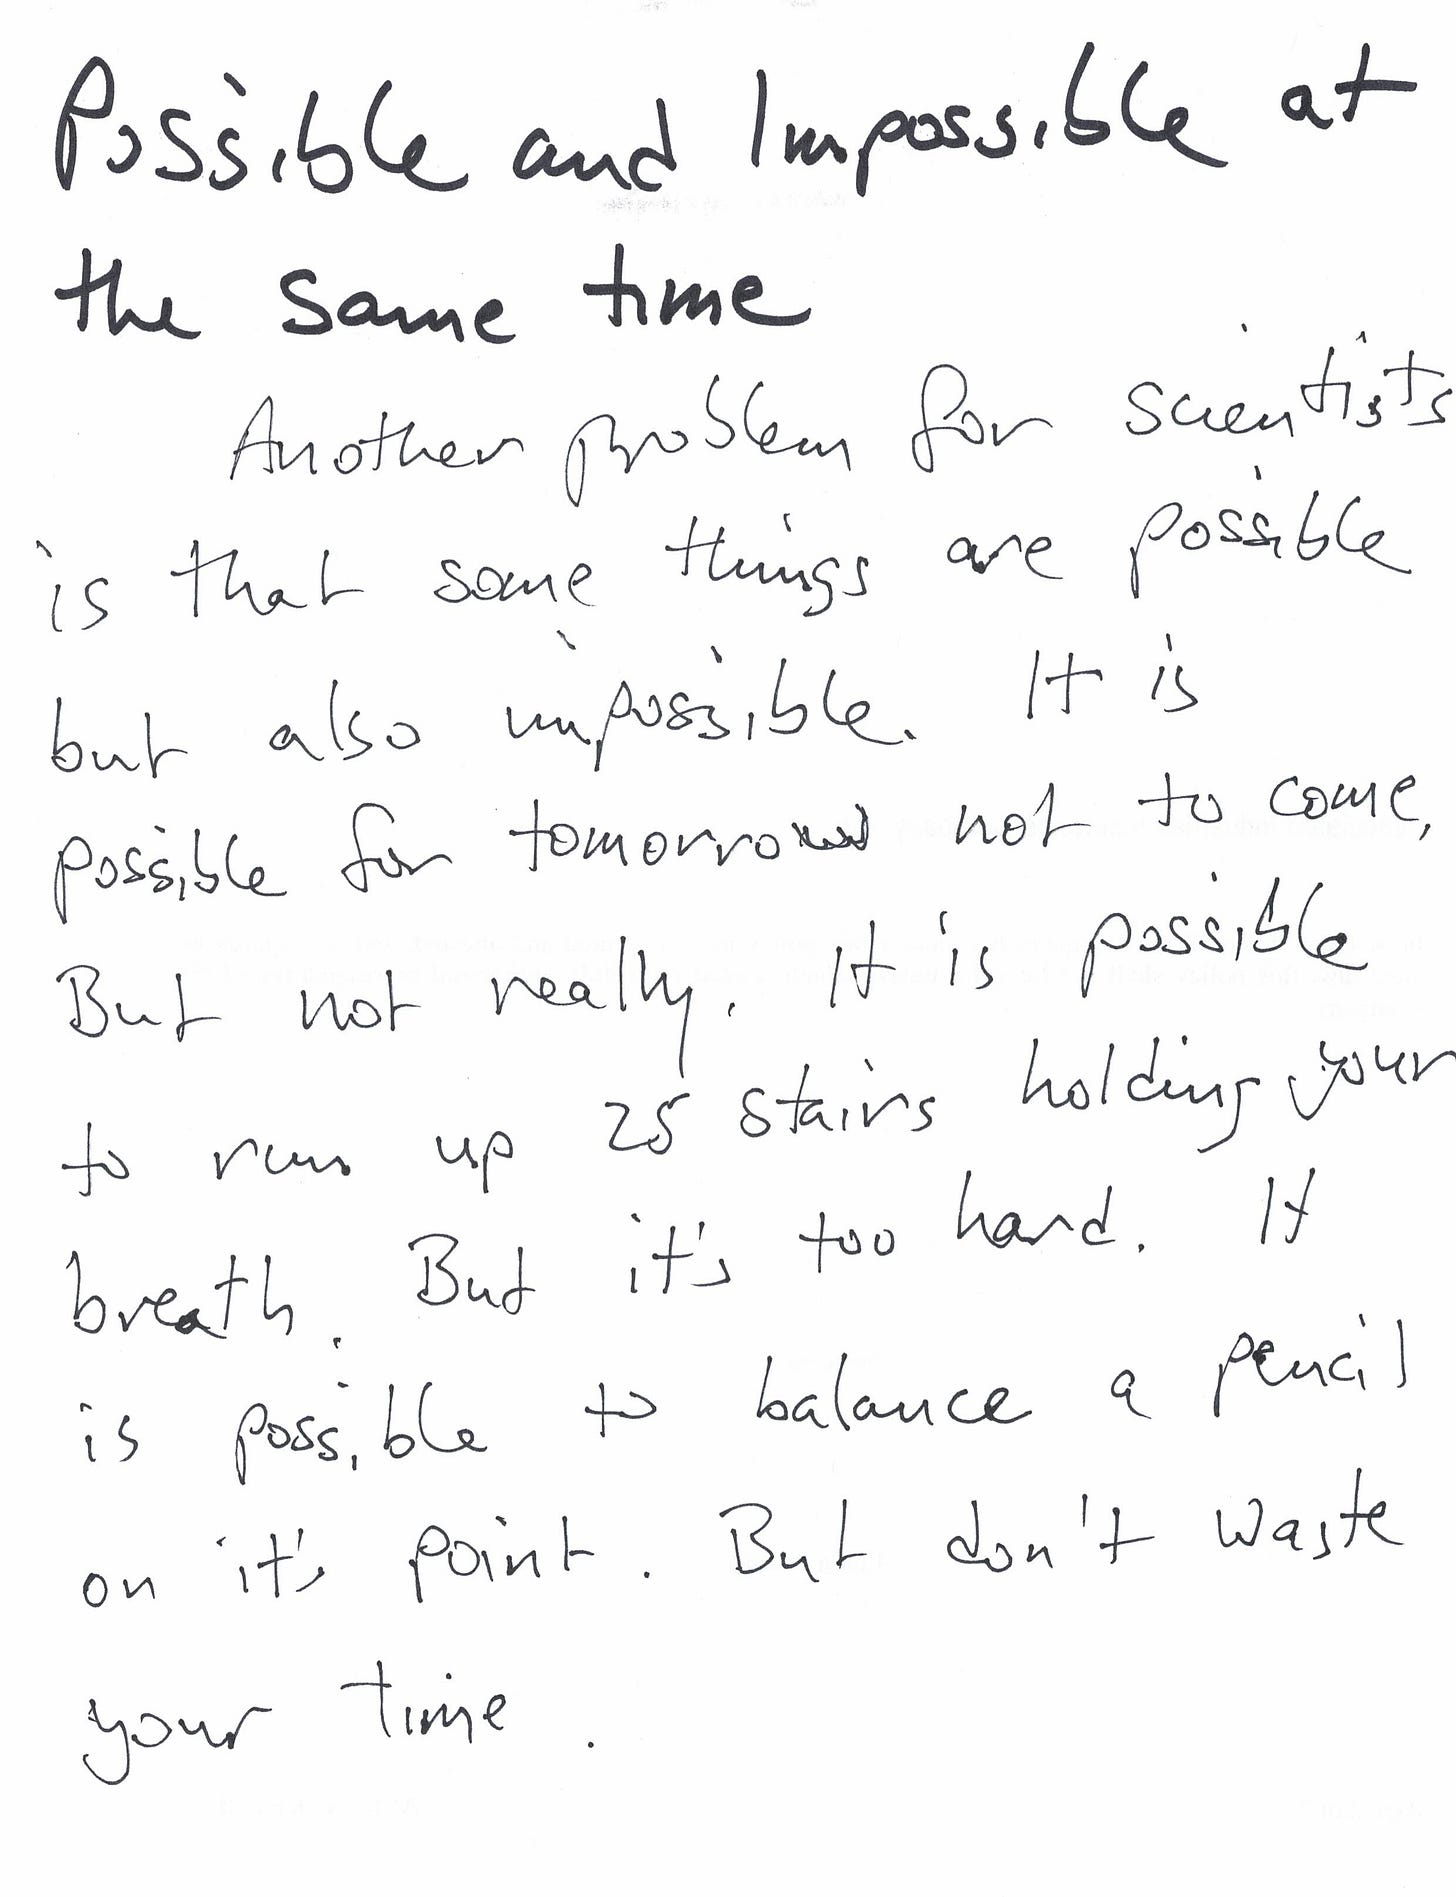 Possible and Impossible at
the same time
Another problem for scientists
is that some things are possible
but also impossible. It is
possible for tomorrow not to come,
But not really. It is possible
to run up 25 stairs holding your
breath. But it's too hard. It
is possible to balance a pencil
on it's point. But don't waste
your time.